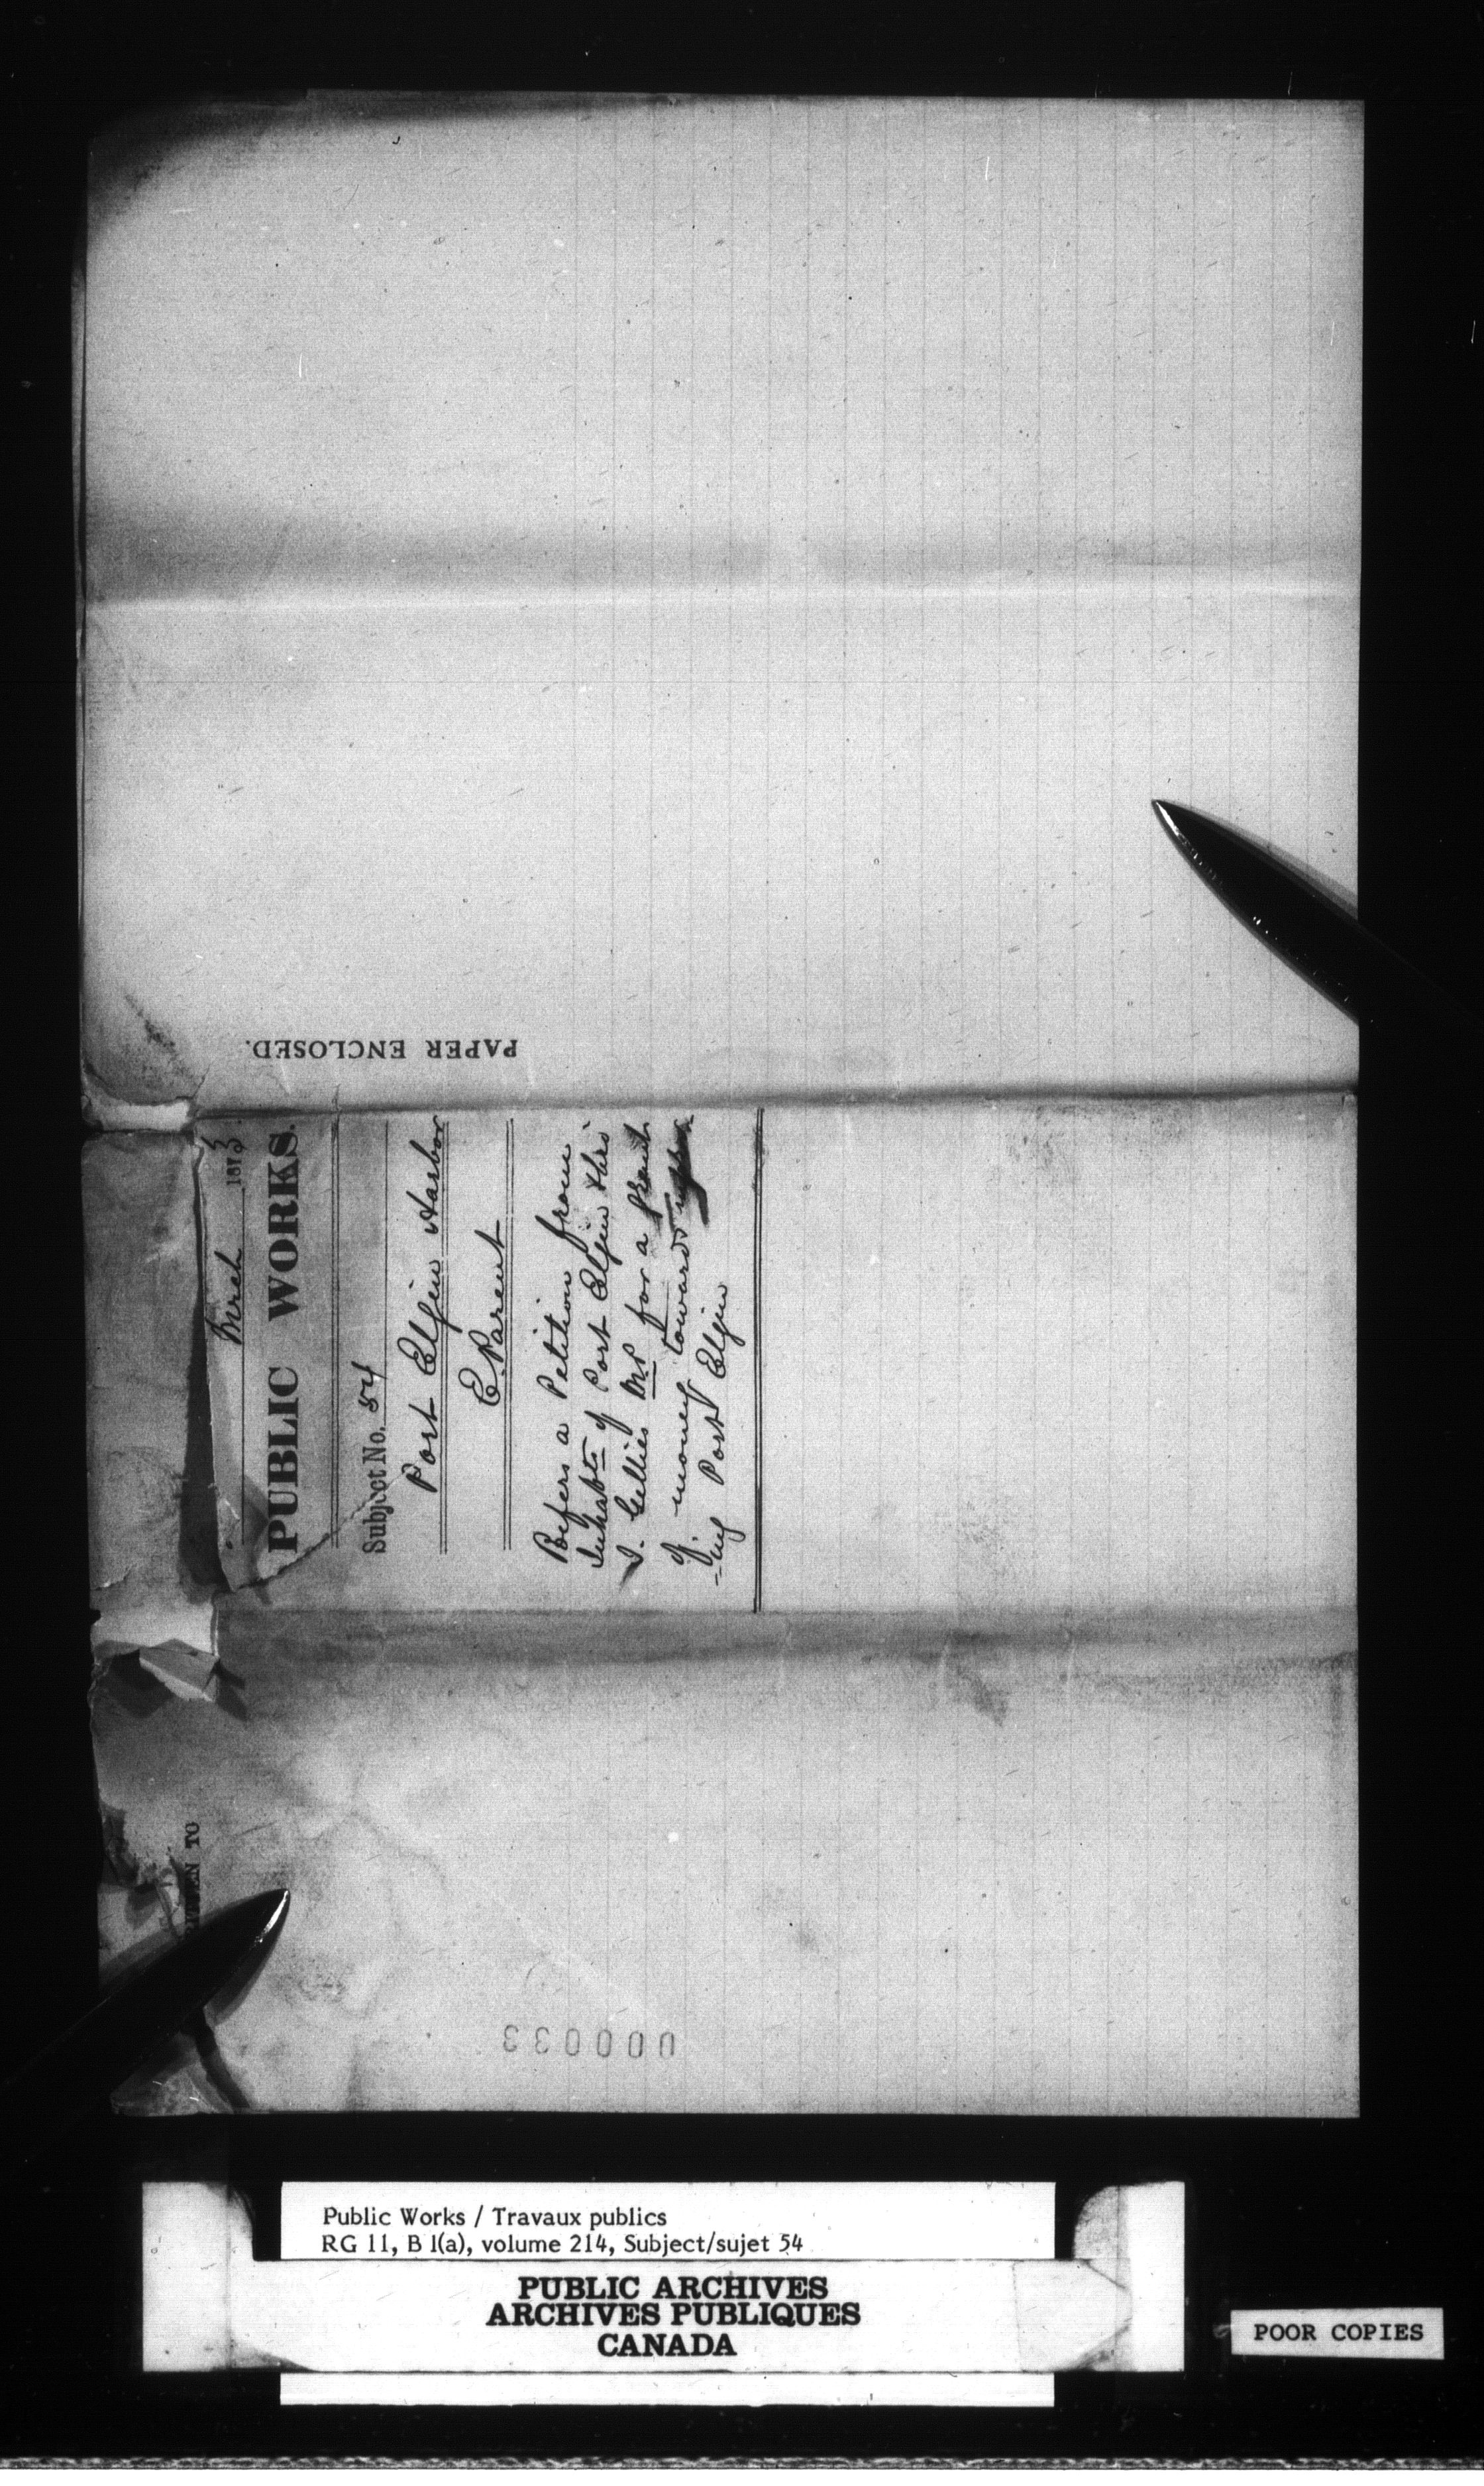 PAPER ENCLOSED.
March 1873.
PUBLIC WORKS.
Subject No. 54
Port Elgin Harbor
E. Parent
Refers a Petition from
Inhabts of Port Elgin thro'
J. Gillies MP for a grant
of money towards
-ing Port Elgin
TO
000033
Public Works / Travaux publics
RG 11, B 1(a), volume 214, Subject/sujet 54
PUBLIC ARCHIVES
ARCHIVES PUBLIQUES
CANADA
POOR COPIES